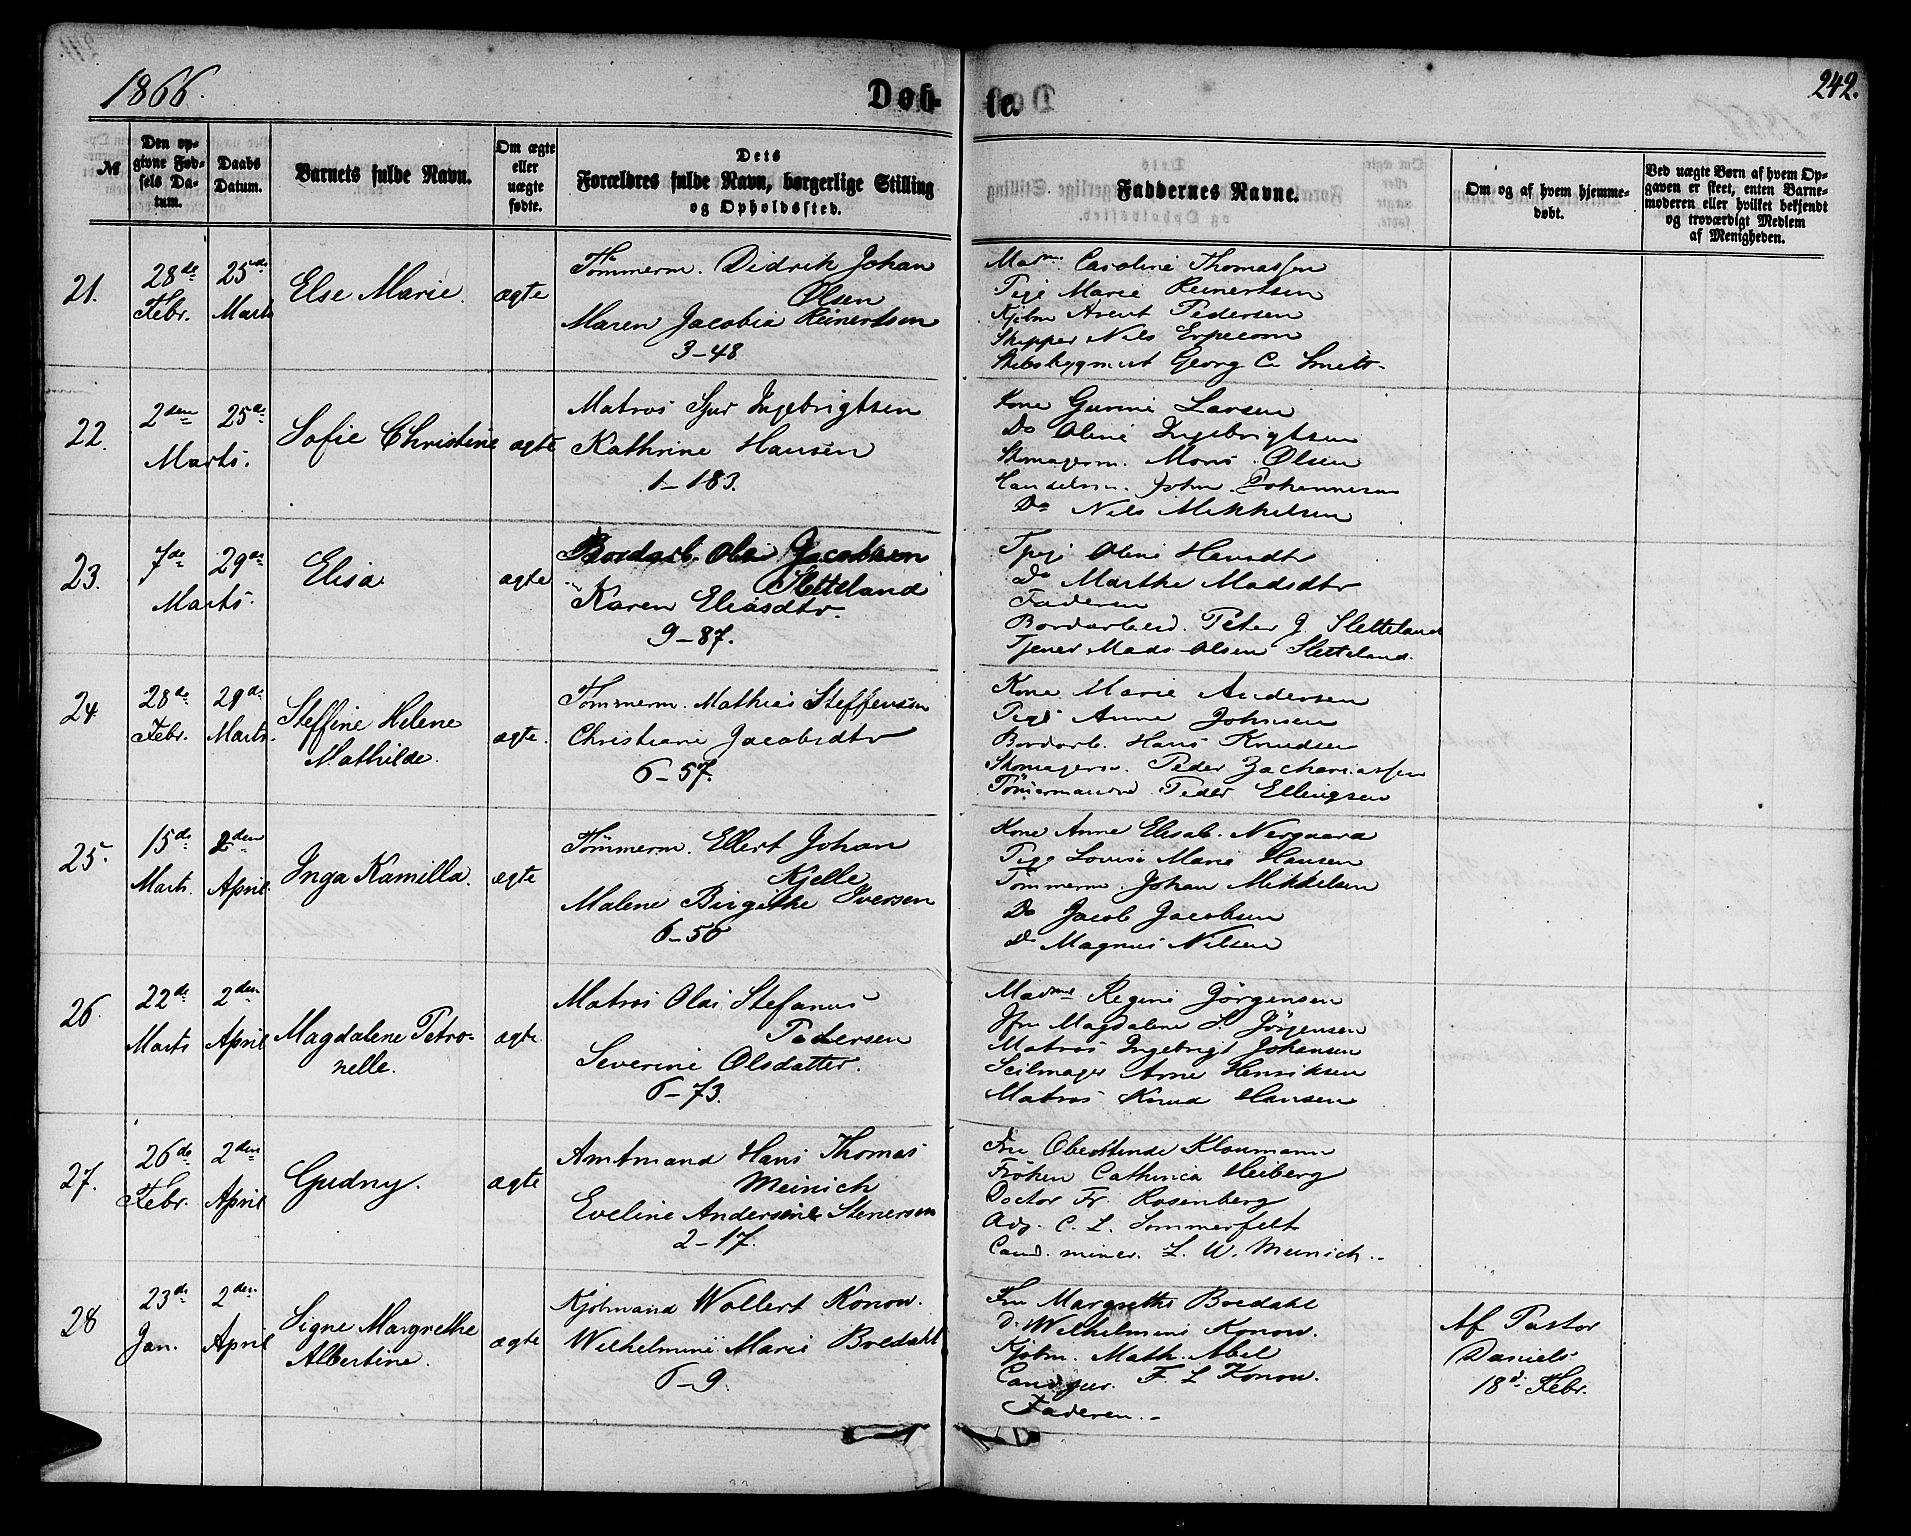 1866.
Døb-
te.
242.
№
Den op-
givne Fød-
sels Da-
tum.
Daabs
Datum.
Barnets fulde Navn.
Om ægte
eller
uægte
fødte.
Dets
Forældres fulde Navn, borgerlige Stilling
og Opholdssted.
Faddernes Navne.
Om og af hvem hjemme-
døbt.
Ved uægte Børn af hvem Op-
gaven er skeet, enten Barne-
moderen eller hvilket bekjendt
og troværdigt Medlem
af Menigheden.
21.
28de
Febr.
25de
Marts
Else Marie.
ægte
Tømmerm. Didrik Johan
Olsen
Maren Jacobia Reinertsen
3-48
Madme Caroline Thomassen
Pige Marie Reinertsen
Kjøbm Arent Pedersen
Skipper Nils Erpecom
Skibsbygmest Georg C. Smitt.
22.
2den
25de
Marts.
Sofie Christine
ægte
Matros Sjur Ingebrigtsen
Kathrine Hansen
1-183.
Kone Gurine Larsen
Do Oline Ingebrigtsen
Skomagerm. Mons Olsen
Handelsm. John Johannesen
Do Nils Mikkelsen
23.
7de
29de
Marts.
Elisa
ægte
Bordarb. Ola Jacobsen
Sletteland
Karen Eliasdtr.
9-87.
Pige Oline Hansdtr
Do Marthe Madsdtr
Faderen
Bordarbeid. Peter J Sletteland
Tjener Mads Olsen Sletteland.
24
28de
Febr.
29de
Marts.
Steffine Helene
Mathilde.
ægte.
Tømmerm. Mathias Steffensen
Christiane Jacobsdtr
6-57.
Kone Marie Andersen
Pige Anne Johnsen
Bordarb. Hans Knudsen
Skomagersv. Peder Zachariassen
Tømmermand Peder Ellingsen
25.
15de
Marts.
2den
April
Inga Kamilla.
ægte
Tømmerm. Ellert Johan
Kjelle
Malene Birgithe Iversen
6-56
Kone Anne Elisab. Nergaard
Pige Louise Marie Hansen
Tømmerm. Johan Mikkelsen
Do Jacob Jacobsen
Do Magnus Nilsen
26.
22de
Marts
2den
April
Magdalene Petro-
nelle.
ægte
Matros Olai Stefanus
Pedersen
Severine Olsdatter.
6-73.
Madme Regine Jørgensen
Jfru Magdalene S. Jørgensen
Matros Ingebrigt Johansen
Seilmager Arne Henriksen
Matros Knud Hansen
27.
26de
Febr.
2den
April
Gudny.
ægte
Amtmand Hans Thomas
Meinich
Eveline Andersine Stenersen
2-17.
Fru Oberstinde Klaumann
Frøken Cathinca Heiberg
Doctor Fr. Rosenberg
Adj. C. L. Sommerfelt
Cand. miner. L. W. Meinich.
28
23de
Jan.
2den
April
Signe Margrethe
Albertine.
ægte
Kjøbmand Wollert Konow.
Wilhelmine Marie Boedahl
6-9.
Fru Margrethe Boedahl
Do Wilhelmine Konow.
Kjøbm. Math. Abel
Cand jur. F. L Konow.
Faderen.
Af Pastor
Daniels
18de Febr.